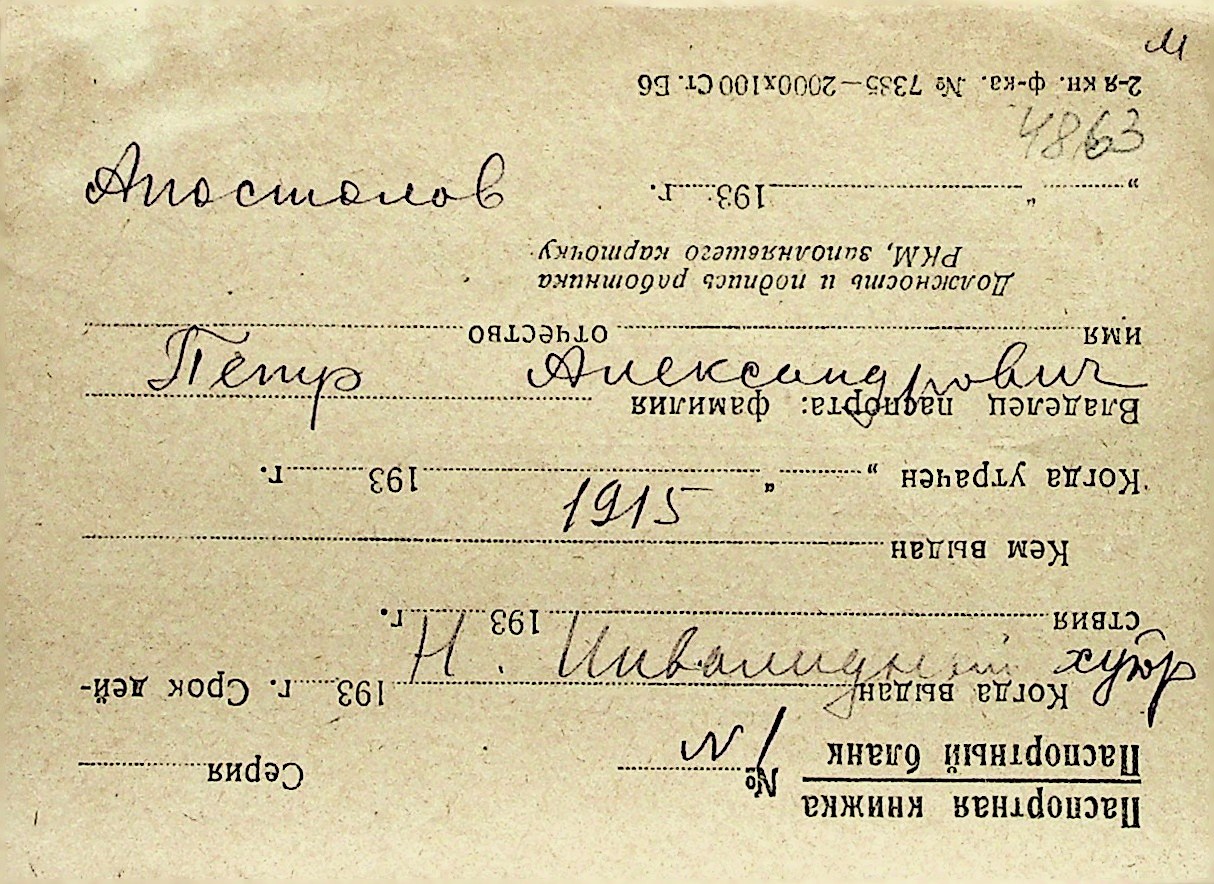 м
4863
Апостолов
Петр Александрович
1915
Н. Инвалидный хутор
N 1
Паспортная книжка
Паспортный бланк
№ Серия
Когда выдан 193 г. Срок дей-
ствия 193 г.
Кем выдан
Когда утрачен „ “ 193 г.
Владелец паспорта: фамилия
имя отчество
Должность и подпись работника
РКМ, заполнявшего карточку
„ “ 193 г.
2-я кн. ф-ка. № 7335—2000х100 Ст. Б6